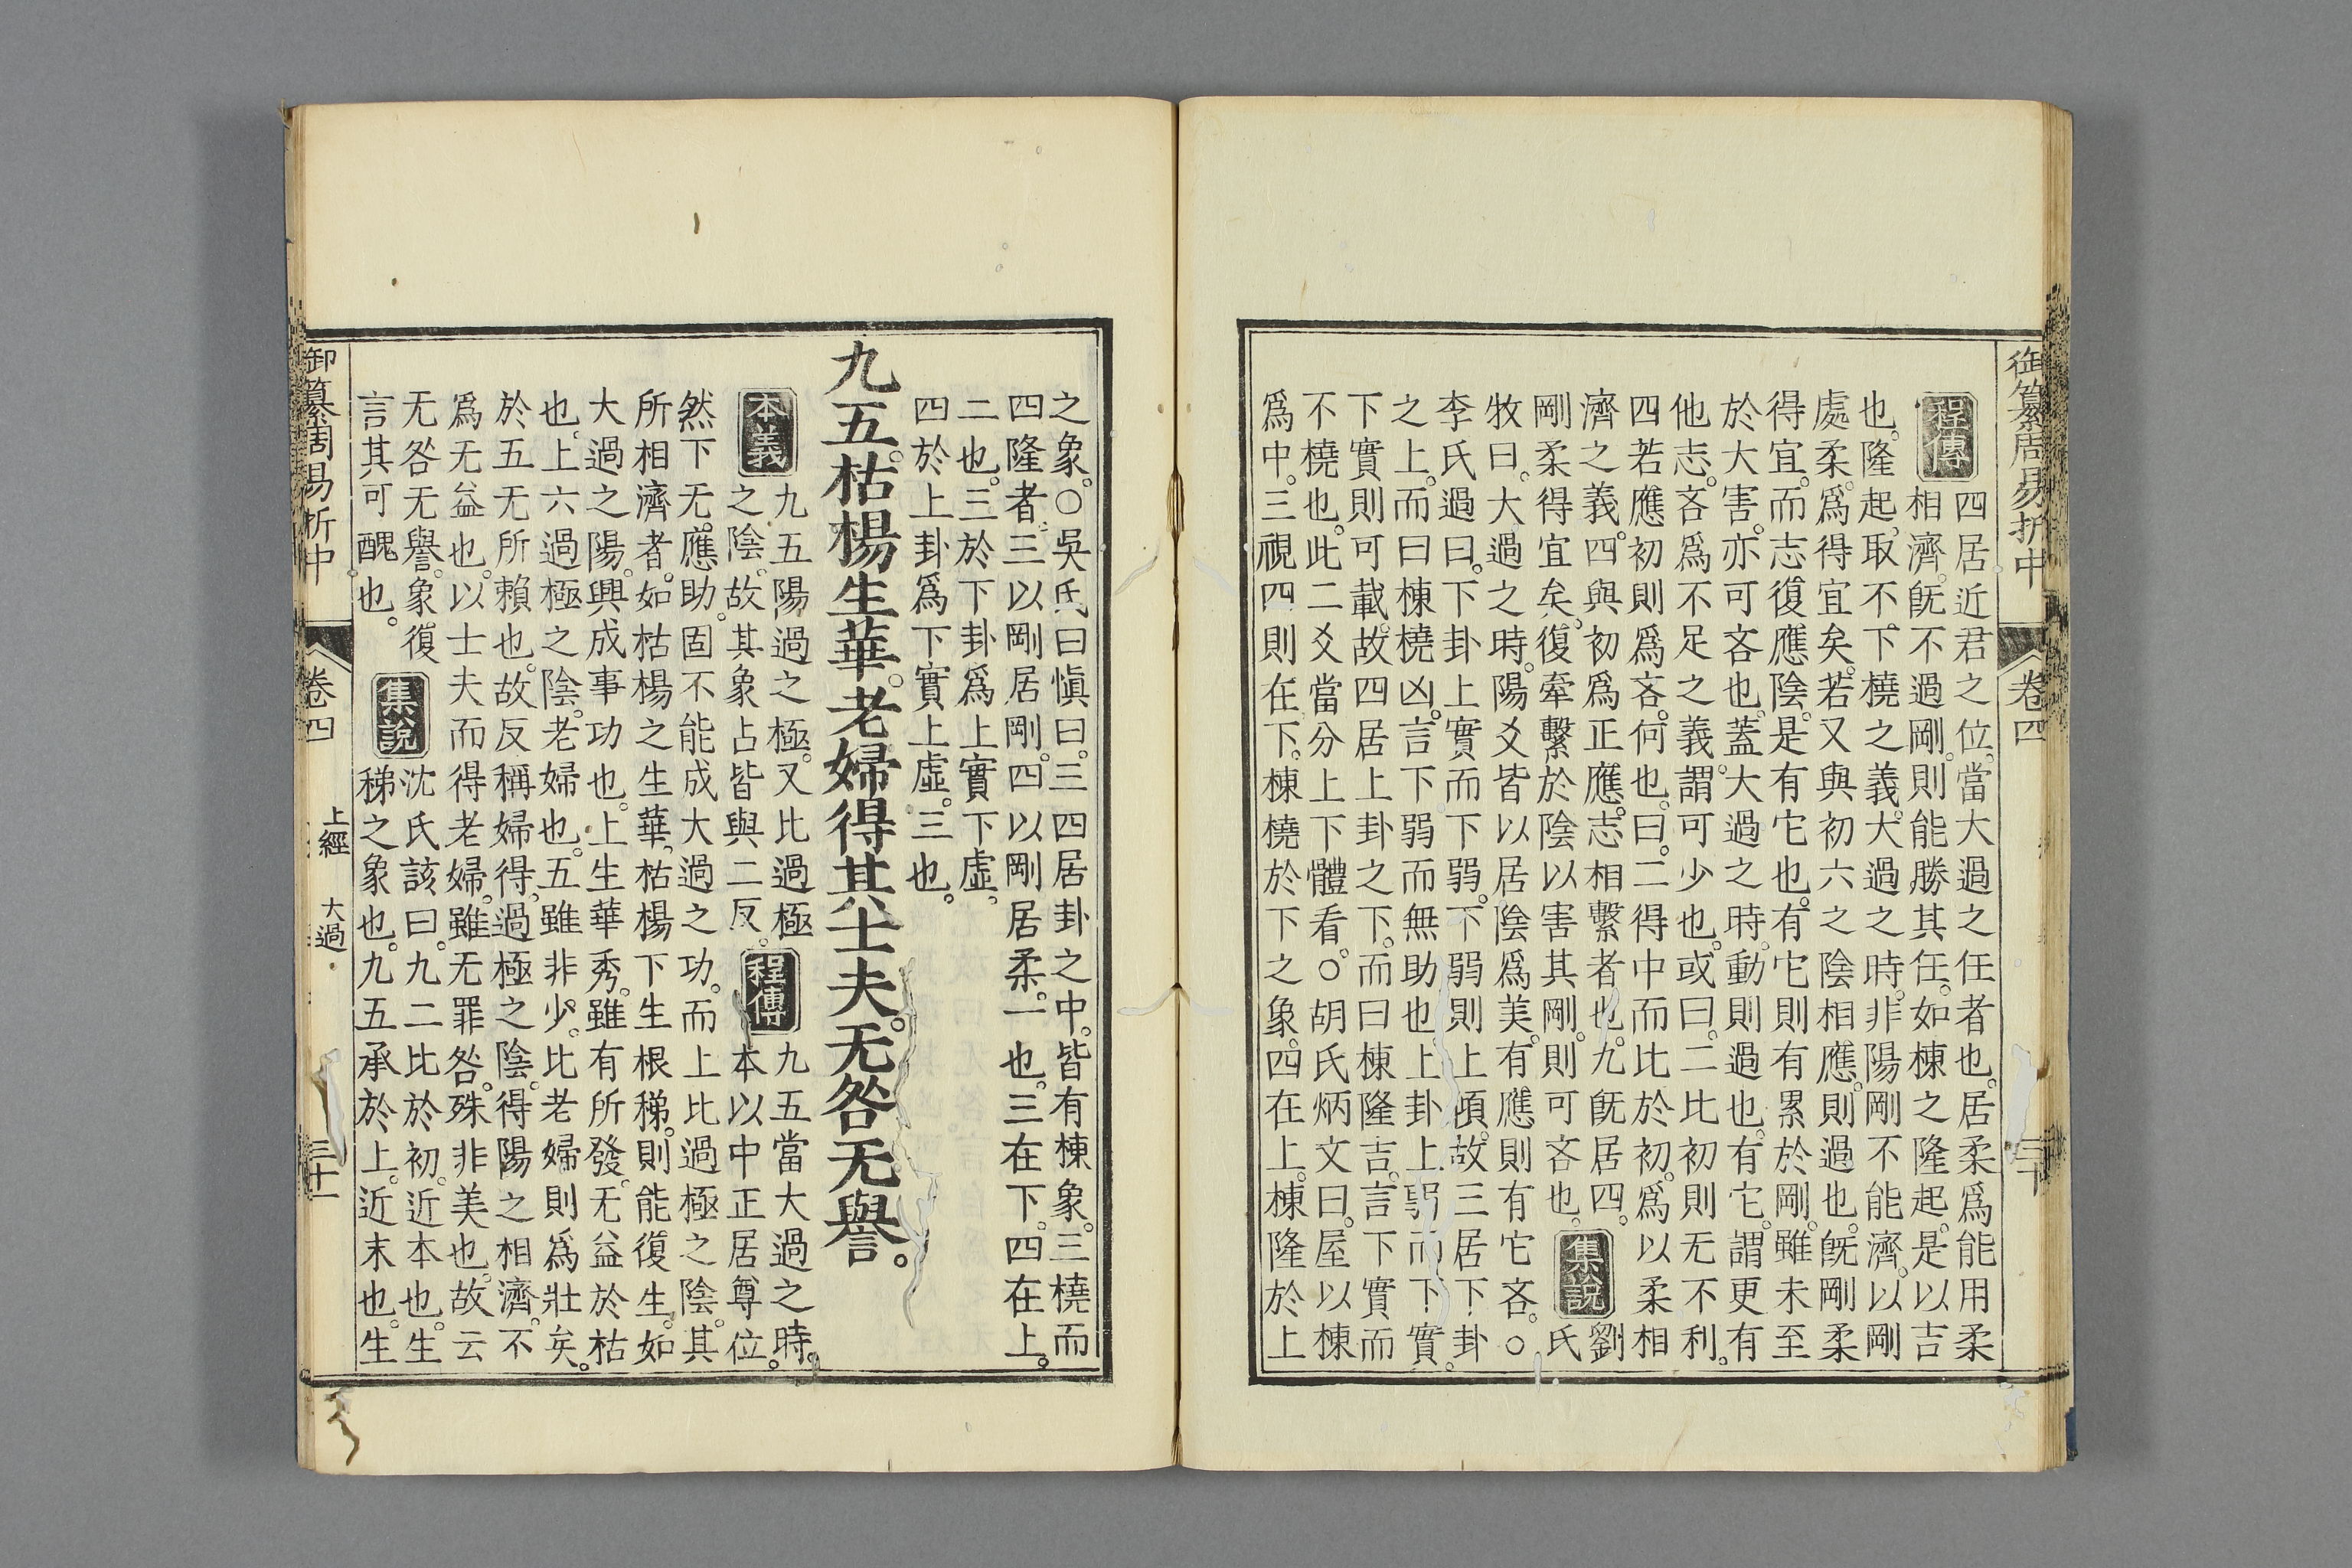 御纂周易折中 卷四 三十
程傳
四居近君之位。當大過之任者也。居柔爲能用柔
相濟。旣不過剛。則能勝其任。如棟之隆起。是以吉
也。隆起。取不下橈之義。大過之時。非陽剛不能濟。以剛
處柔。爲得宜矣。若又與初六之陰相應。則過也。旣剛柔
得宜。而志復應陰。是有它也。有它則有累於剛。雖未至
於大害。亦可吝也。蓋大過之時。動則過也。有它。謂更有
他志。吝。爲不足之義。謂可少也。或曰。二比初則无不利。
四若應初則爲吝。何也。曰。二得中而比於初。爲以柔相
濟之義。四與初爲正應。志相繫者也。九旣居四。
剛柔得宜矣。復牽繫於陰以害其剛。則可吝也。
集說
劉
氏
牧曰。大過之時。陽爻皆以居陰爲美。有應則有它吝。○
李氏過曰。下卦上實而下弱。下弱則上傾。故三居下卦
之上。而曰棟橈凶。言下弱而無助也。上卦上弱而下實。
下實則可載。故四居上卦之下。而曰棟隆吉。言下實而
不橈也。此二爻當分上下體看。○胡氏炳文曰。屋以棟
爲中。三視四則在下。棟橈於下之象。四在上。棟隆於上
之象。○吳氏曰愼曰。三四居卦之中。皆有棟象。三橈而
四隆者。三以剛居剛。四以剛居柔。一也。三在下。四在上。
二也。三於下卦爲上實下虛。
四於上卦爲下實上虛。三也。
九五。枯楊生華。老婦得其士夫。无咎无譽。
本義
九五陽過之極。又比過極
之陰。故其象占皆與二反。
程傳
九五當大過之時。
本以中正居尊位。
然下无應助。固不能成大過之功。而上比過極之陰。其
所相濟者。如枯楊之生華。枯楊下生根稊。則能復生。如
大過之陽。興成事功也。上生華秀。雖有所發。无益於枯
也。上六過極之陰。老婦也。五雖非少。比老婦則爲壯矣。
於五无所賴也。故反稱婦得。過極之陰。得陽之相濟。不
爲无益也。以士夫而得老婦。雖无罪咎。殊非美也。故云
无咎无譽。象復
言其可醜也。
集說
沈氏該曰。九二比於初。近本也。生
稊之象也。九五承於上。近末也。生
御纂周易折中 卷四 上經 大過 三十一